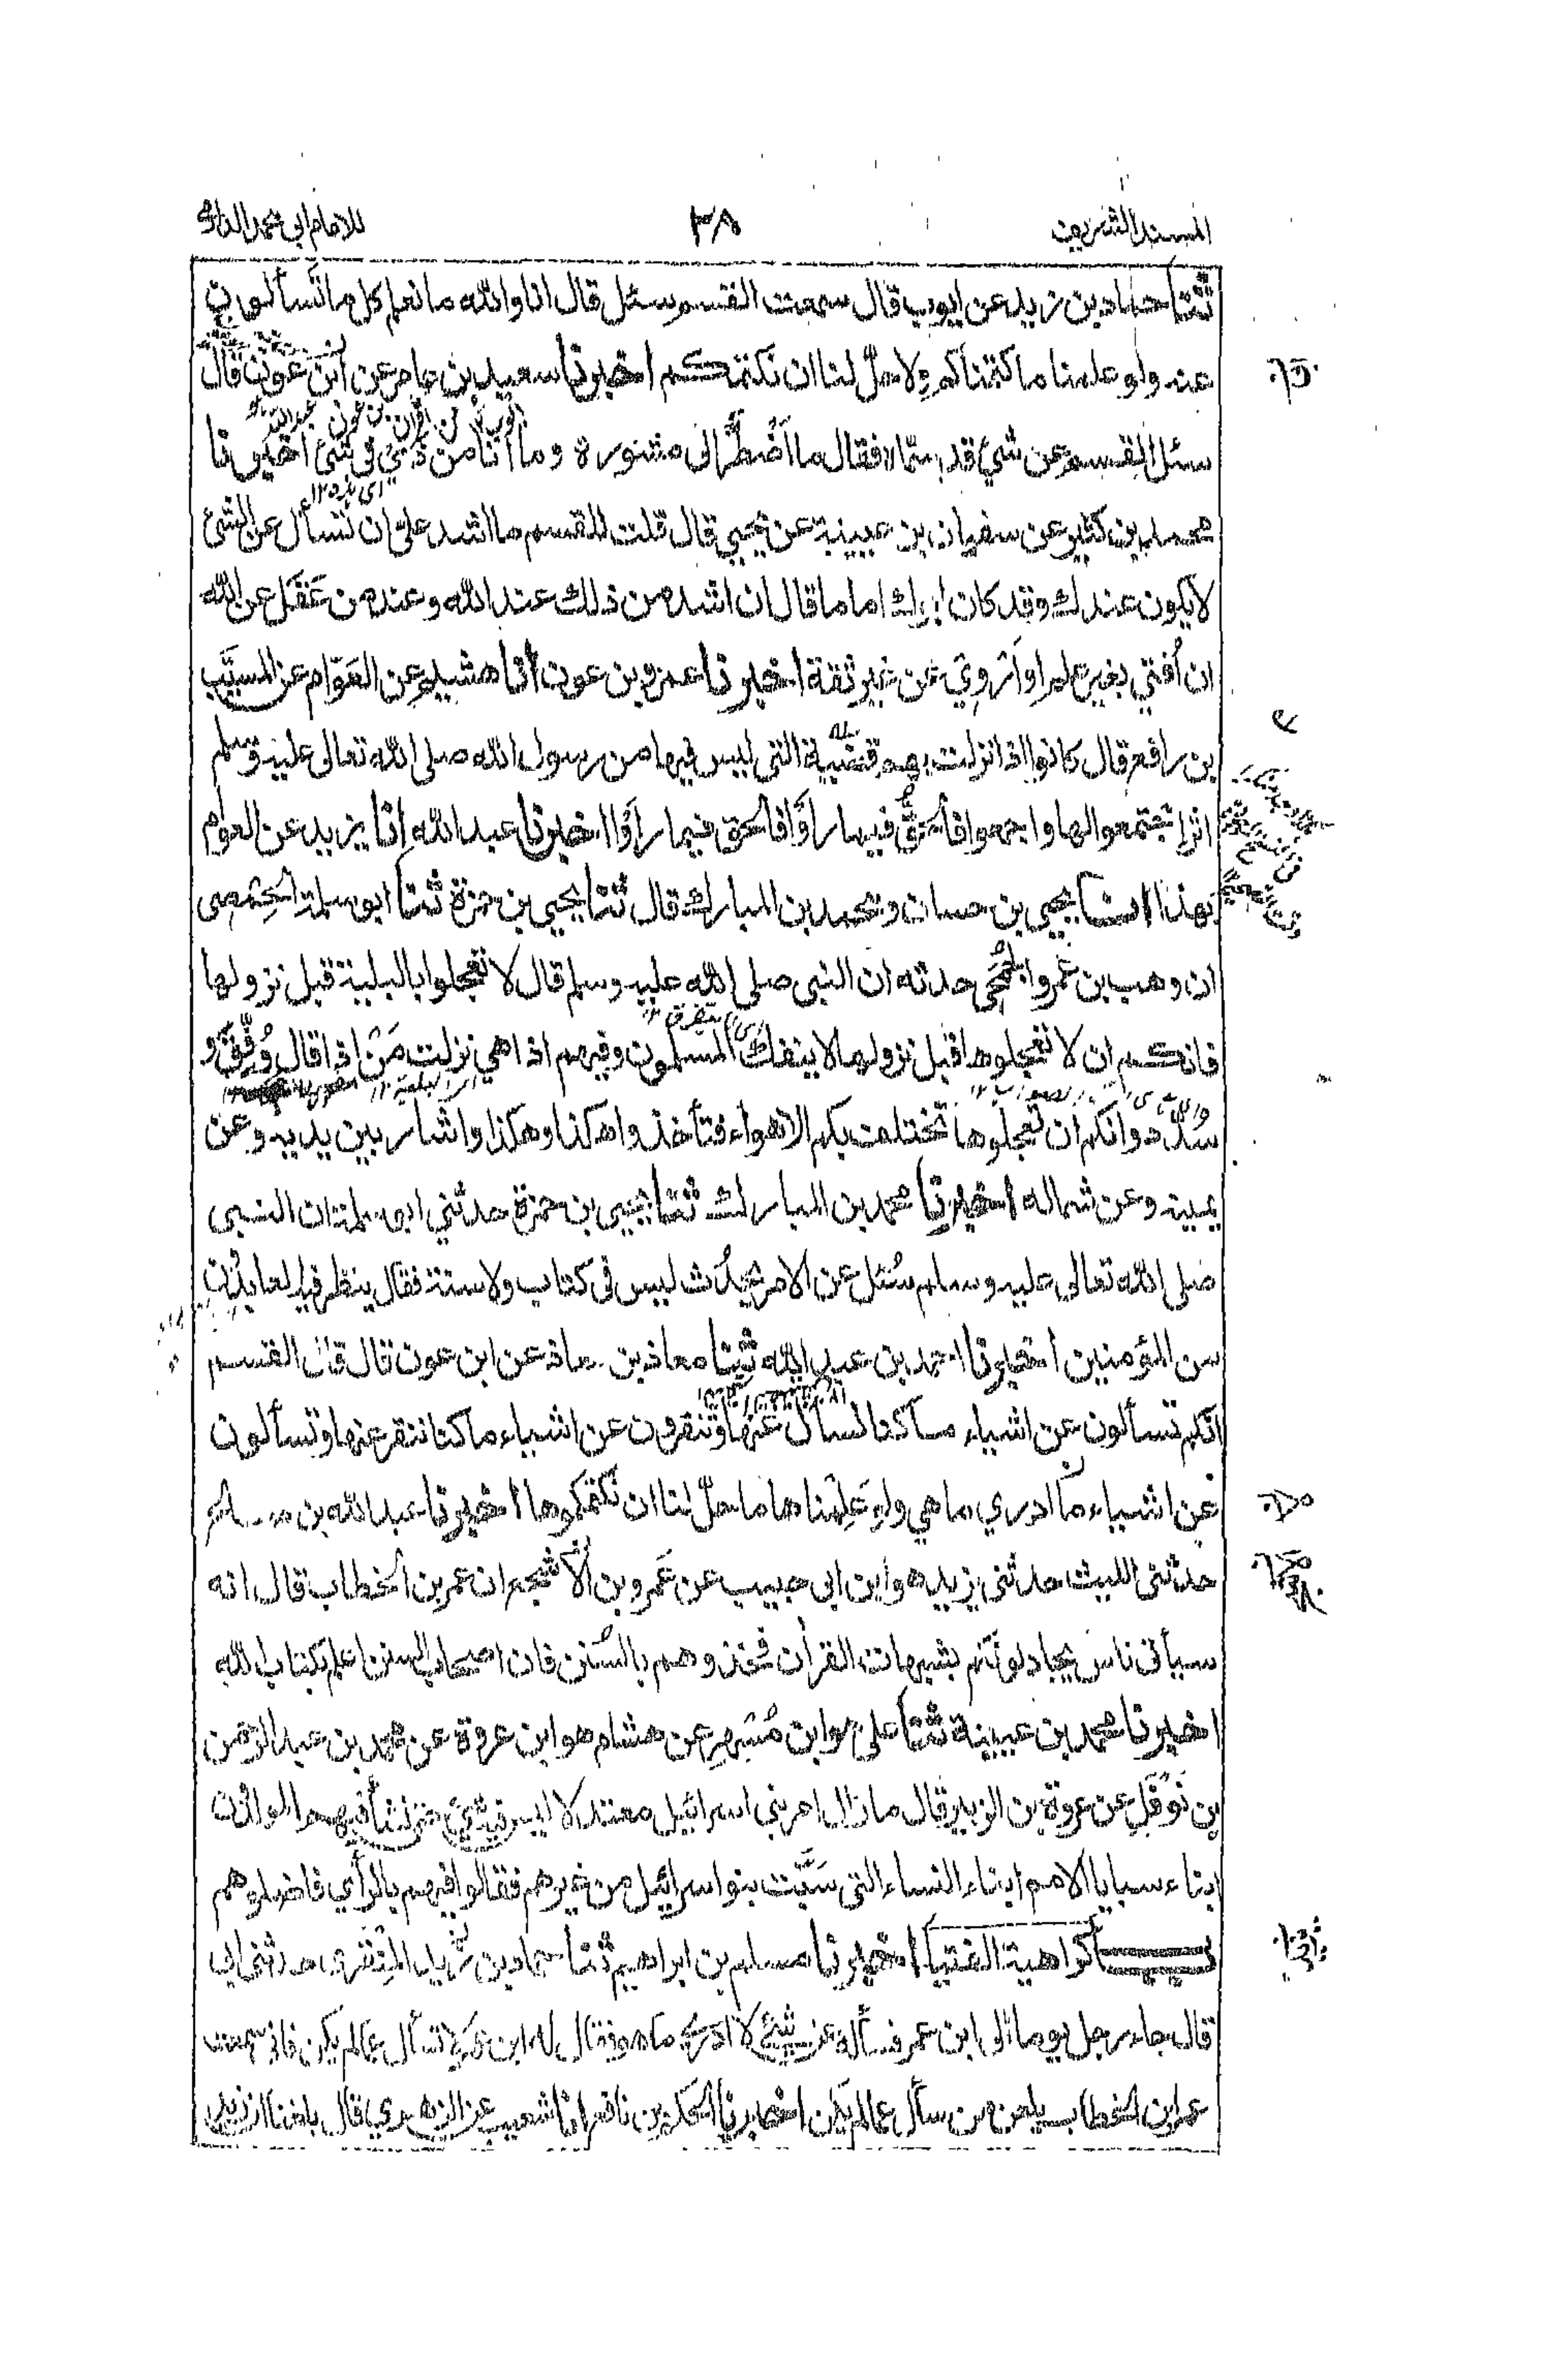 المسند الشريف
٣٨
للامام ابى محمد الدارمى
ثنا حماد بن زيد عن ايوب قال سمعت القسم سئل قال انا والله ما نعلم كل ما تسألون
عنه ولو علمنا ما كتمناكم ولا حلّ لنا ان نكتمكم اخبرنا سعيد بن عامر عن ابن عون قال
سئل القسم عن شئ قد سمّاه فقال ما اضطرّ الى مشورة وما انا من ذى فى شئ اخبرنا
محمد بن كثير عن سفيان بن عيينة عن يحيى قال قلت للقسم ما اشد علىّ ان تسأل عن الشئ
لا يكون عندك وقد كان ابوك اماما قال ان اشد من ذلك عند الله وعند من عَقَل عن الله
ان اُفتي بغير علم او اَروِيَ عن غير ثقة اخبرنا عمرو بن عون انا هشيم عن العَوّام عن المسيَّب
بن رافع قال كانوا اذا نزلت بهم قضية التى ليس فيها من رسول الله صلى الله تعالى عليه وسلم
اثر اجتمعوا لها واجمعوا فالحقّ فيما رأوا فالحق فيما رأوا اخبرنا عبد الله انا يزيد عن العوام
بهذا يحيى بن حسان ومحمد بن المبارك قال ثنا يحيى بن حمزة ثنا ابو سلمة الحِمْصى
ان وهب بن عَمْرو الجُمَحى حدثه ان النبى صلى الله عليه وسلم قال لا تعجلوا بالبلية قبل نزولها
فانكم ان لا تعجلوها قبل نزولها لا ينفك المسلمون وفيهم اذا هي نزلت مَنْ اذا قال وُفِّقَ و
سُدِّد وانكم ان تعجلوها تختلف بكم الاهواء فتأخذوا هكذا وهكذا واشار بين يديه وعن
يمينه وعن شماله اخبرنا محمد بن المبارك ثنا يحيى بن حمزة حدثني ابو سلمة ان النبى
صلى الله تعالى عليه وسلم سُئل عن الامر يحدُث ليس فى كتاب ولا سنة فقال ينظر فيه العابدون
من المؤمنين اخبرنا احمد بن عبد الله ثنا معاذ بن معاذ عن ابن عون قال قال القسم
انكم تسألون عن اشياء ما كنا نسأل عنها وتنقرون عن اشياء ما كنا ننقر عنها وتسألون
عن اشياء ما ادري ما هي ولو عَلِمْنا ها ما حلّ لنا ان نكتمكموها اخبرنا عبد الله بن صالح
حدثنى الليث حدثنى يزيد هو ابن ابى حبيب عن عَمرو بن الاشج ان عمر بن الخطاب قال انه
سيأتى ناس يجادلونكم بشبهات القرأن فخذوهم بالسُنن فان اصحاب السنن اعلم بكتاب الله
اخبرنا محمد بن عيينة ثنا على هو ابن مُسْهِر عن هشام هو ابن عروة عن محمد بن عبد الرحمن
بن نَوفَل عن عروة بن الزبير قال ما زال امر بني اسرائيل معتدلا ليس فيه شئ حتى نشأ فيهم المولدون
ابناء سبايا الامم ابناء النساء التى سَبَتْ بنو اسرائيل من غيرهم فقالوا فيهم بالرأي فاضلوهم
باب كراهية الفتيا اخبرنا مسلم بن ابراهيم ثنا حماد بن زيد المِنْقَرى حدثنى ابى
قال جاء رجل يوما الى ابن عمر فسأله عن شئ لا ادرى ما هو فقال له ابن عمر لا تسأل عما لم يكن فانى سمعت
عمر ابن الخطاب يلعن من سأل عما لم يكن اخبرنا الحكم بن نافع انا شعيب عن الزهري قال بلغنا ان زيد